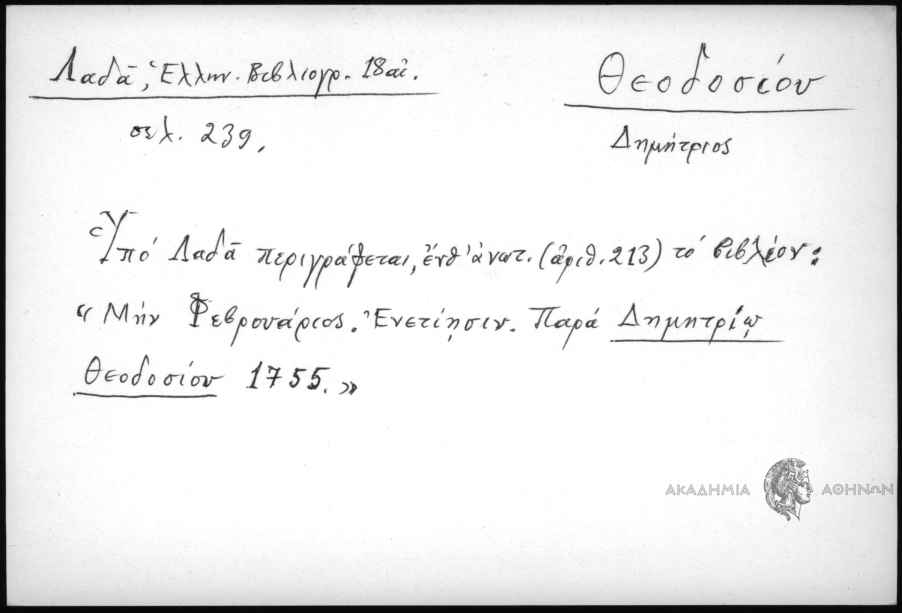 Λαδᾶ, Ἑλλην. Βιβλιογρ. 18 αἰ.
σελ. 239,
Θεοδοσίου
Δημήτριος
Ὑπό Λαδᾶ περιγράφεται, ἔνθ' ἀνωτ. (ἀριθ. 213) τό βιβλίον:
« Μήν Φεβρουάριος. Ἐνετίῃσιν. Παρά Δημητρίῳ
Θεοδοσίου 1755. »
ΑΚΑΔΗΜΙΑ ΑΘΗΝΩΝ